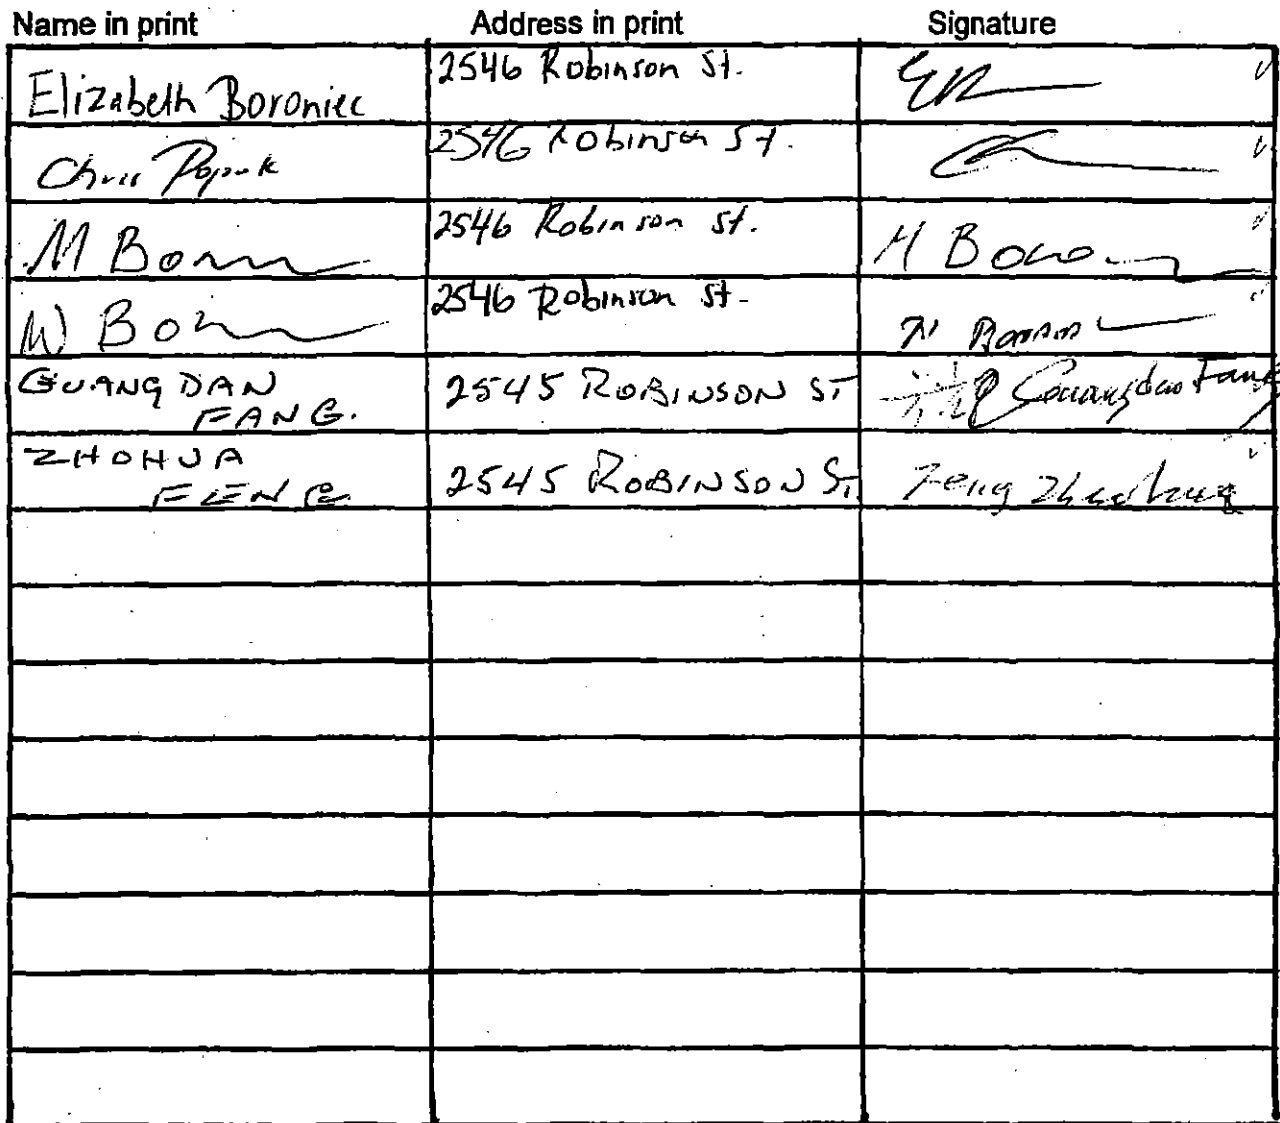 Name in print Address in print Signature
Elizabeth Boroniec 2546 Robinson St.
Chris 2546 Robinson St.
M 2546 Robinson St. M
W 2546 Robinson St.
GUANG DAN
FANG. 2545 ROBINSON ST Guangdan Fang
ZHOHUA
FENG 2545 ROBINSON ST. Feng